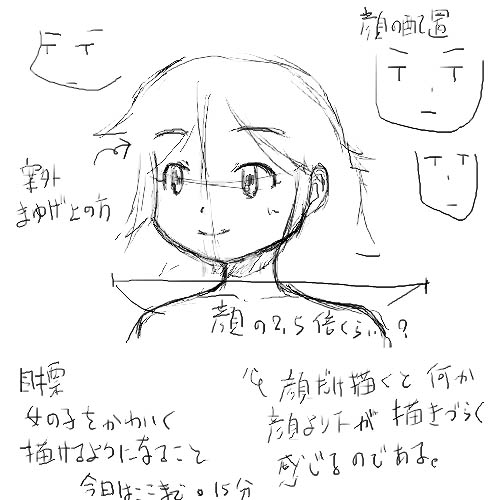 顔の配置
案外
まゆげ上の方
顔の2,5倍くらい?
目標
女の子をかわいく
描けるようになること
今日はここまで。15分
顔だけ描くと何か
顔より下が描きづらく
感じるのである。